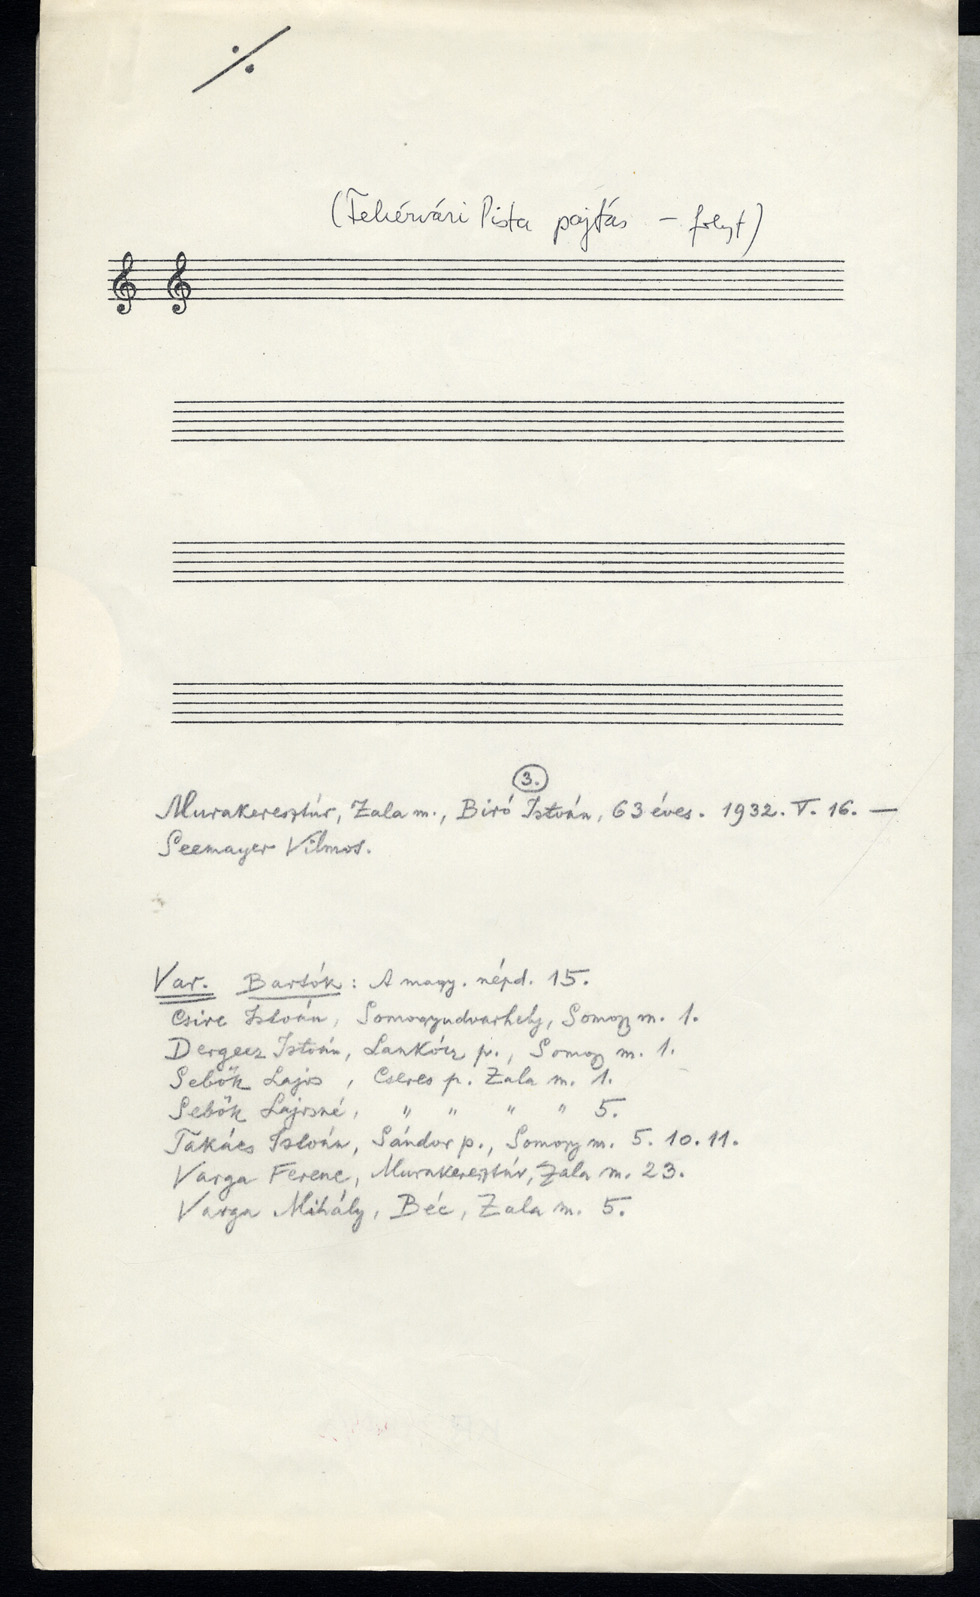 ·/.
(Fehérvári Pista pajtás – folyt)
3.
Murakeresztúr, Zala m., Biró István, 63 éves. 1932. V. 16. —
Seemayer Vilmos.
Var. Bartók: A magy. népd. 15.
Csire István, Somogyudvarhely, Somogy m. 1.
Dergecz István, Lankócz p., Somogy m. 1.
Sebők Lajos, Cseres p. Zala m. 1.
Sebők Lajosné, " " " " 5.
Takács István, Sándor p., Somogy m. 5. 10. 11.
Varga Ferenc, Murakeresztúr, Zala m. 23.
Varga Mihály, Béc, Zala m. 5.